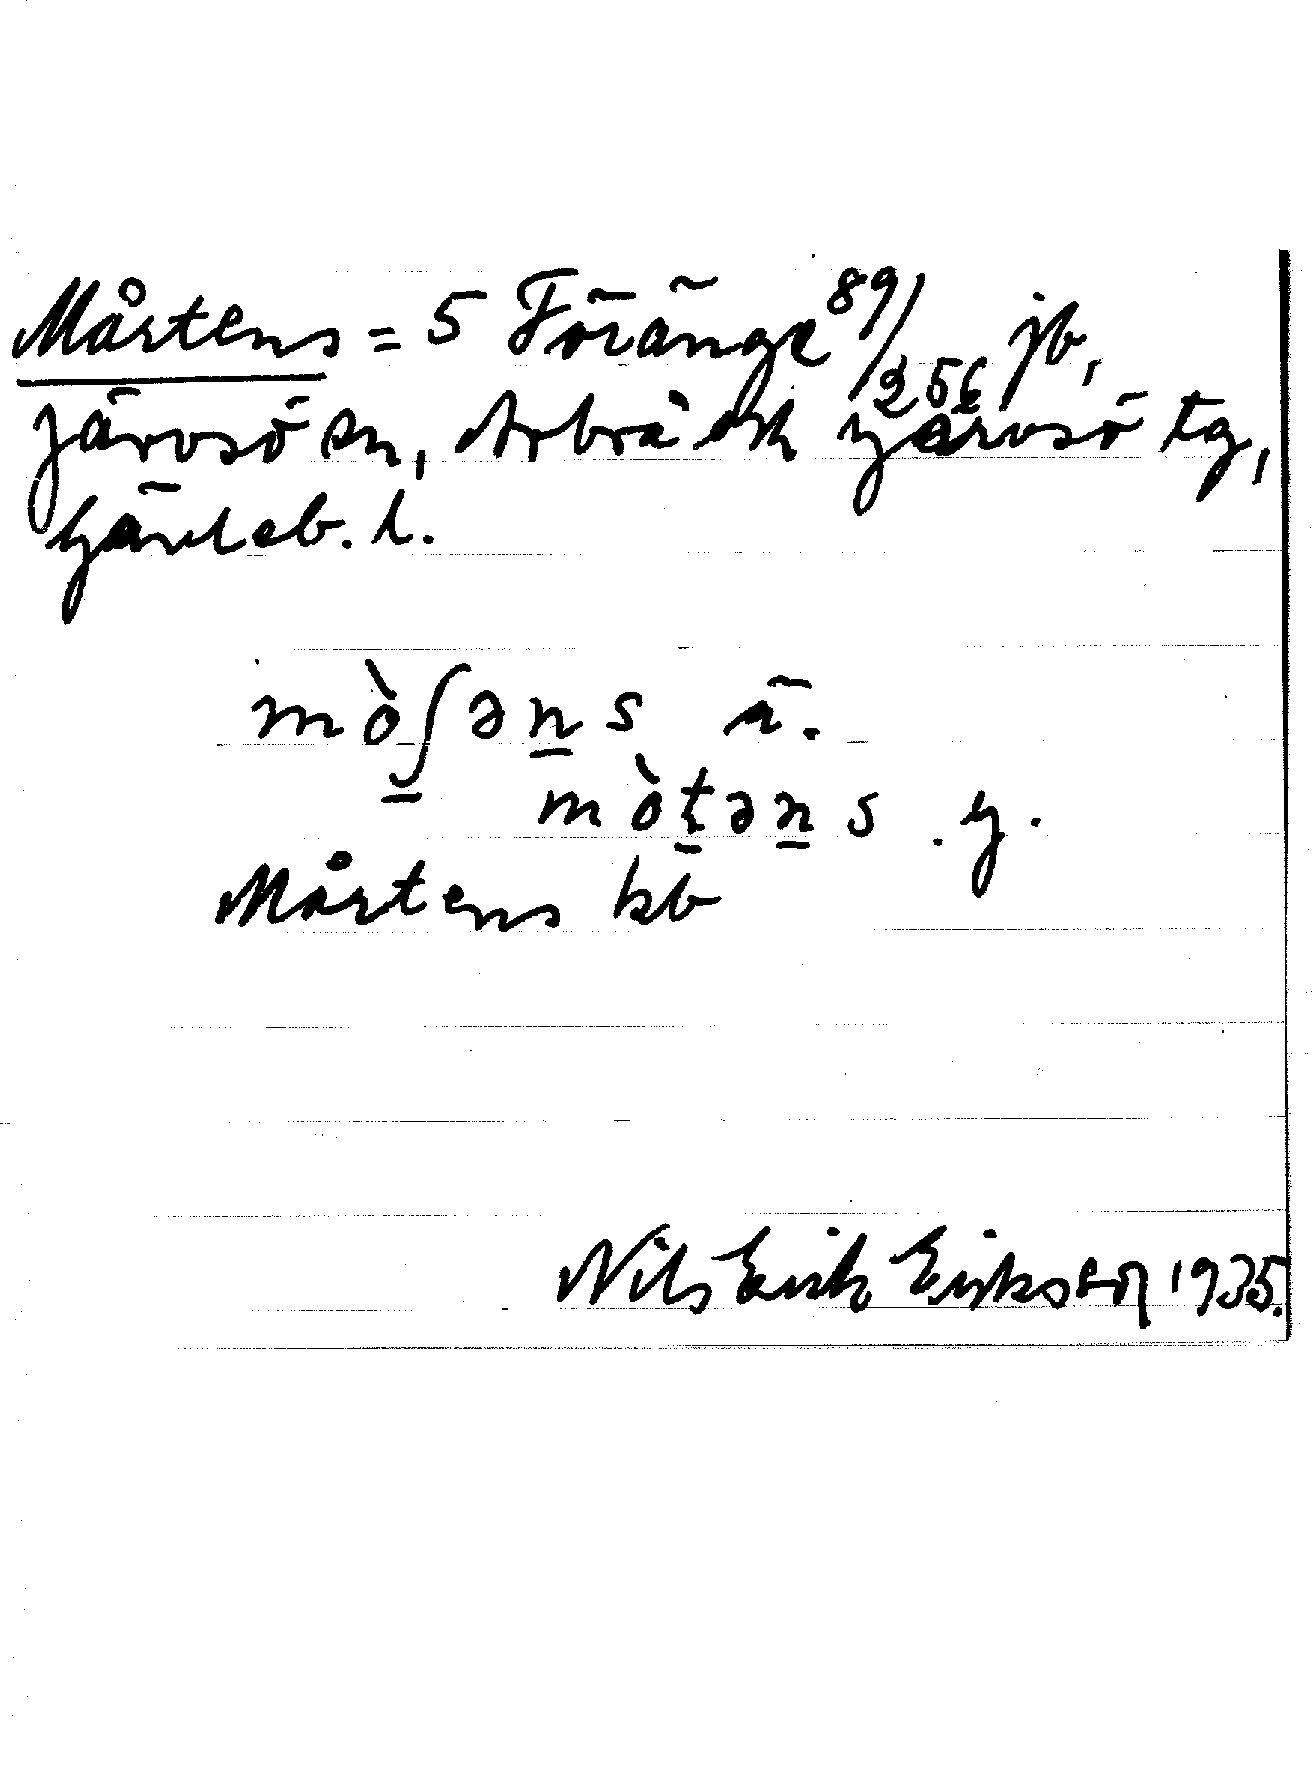 Mårtens = 5 Föränge 89/256 jb,
Järvsö sn, Arbrå och Järvsö tg,
Gävleb. l.
mò̱ʃəṉs ä.
mòṯəṉs . y.
Mårtens kb
Nils Erik Eriksson 1935.